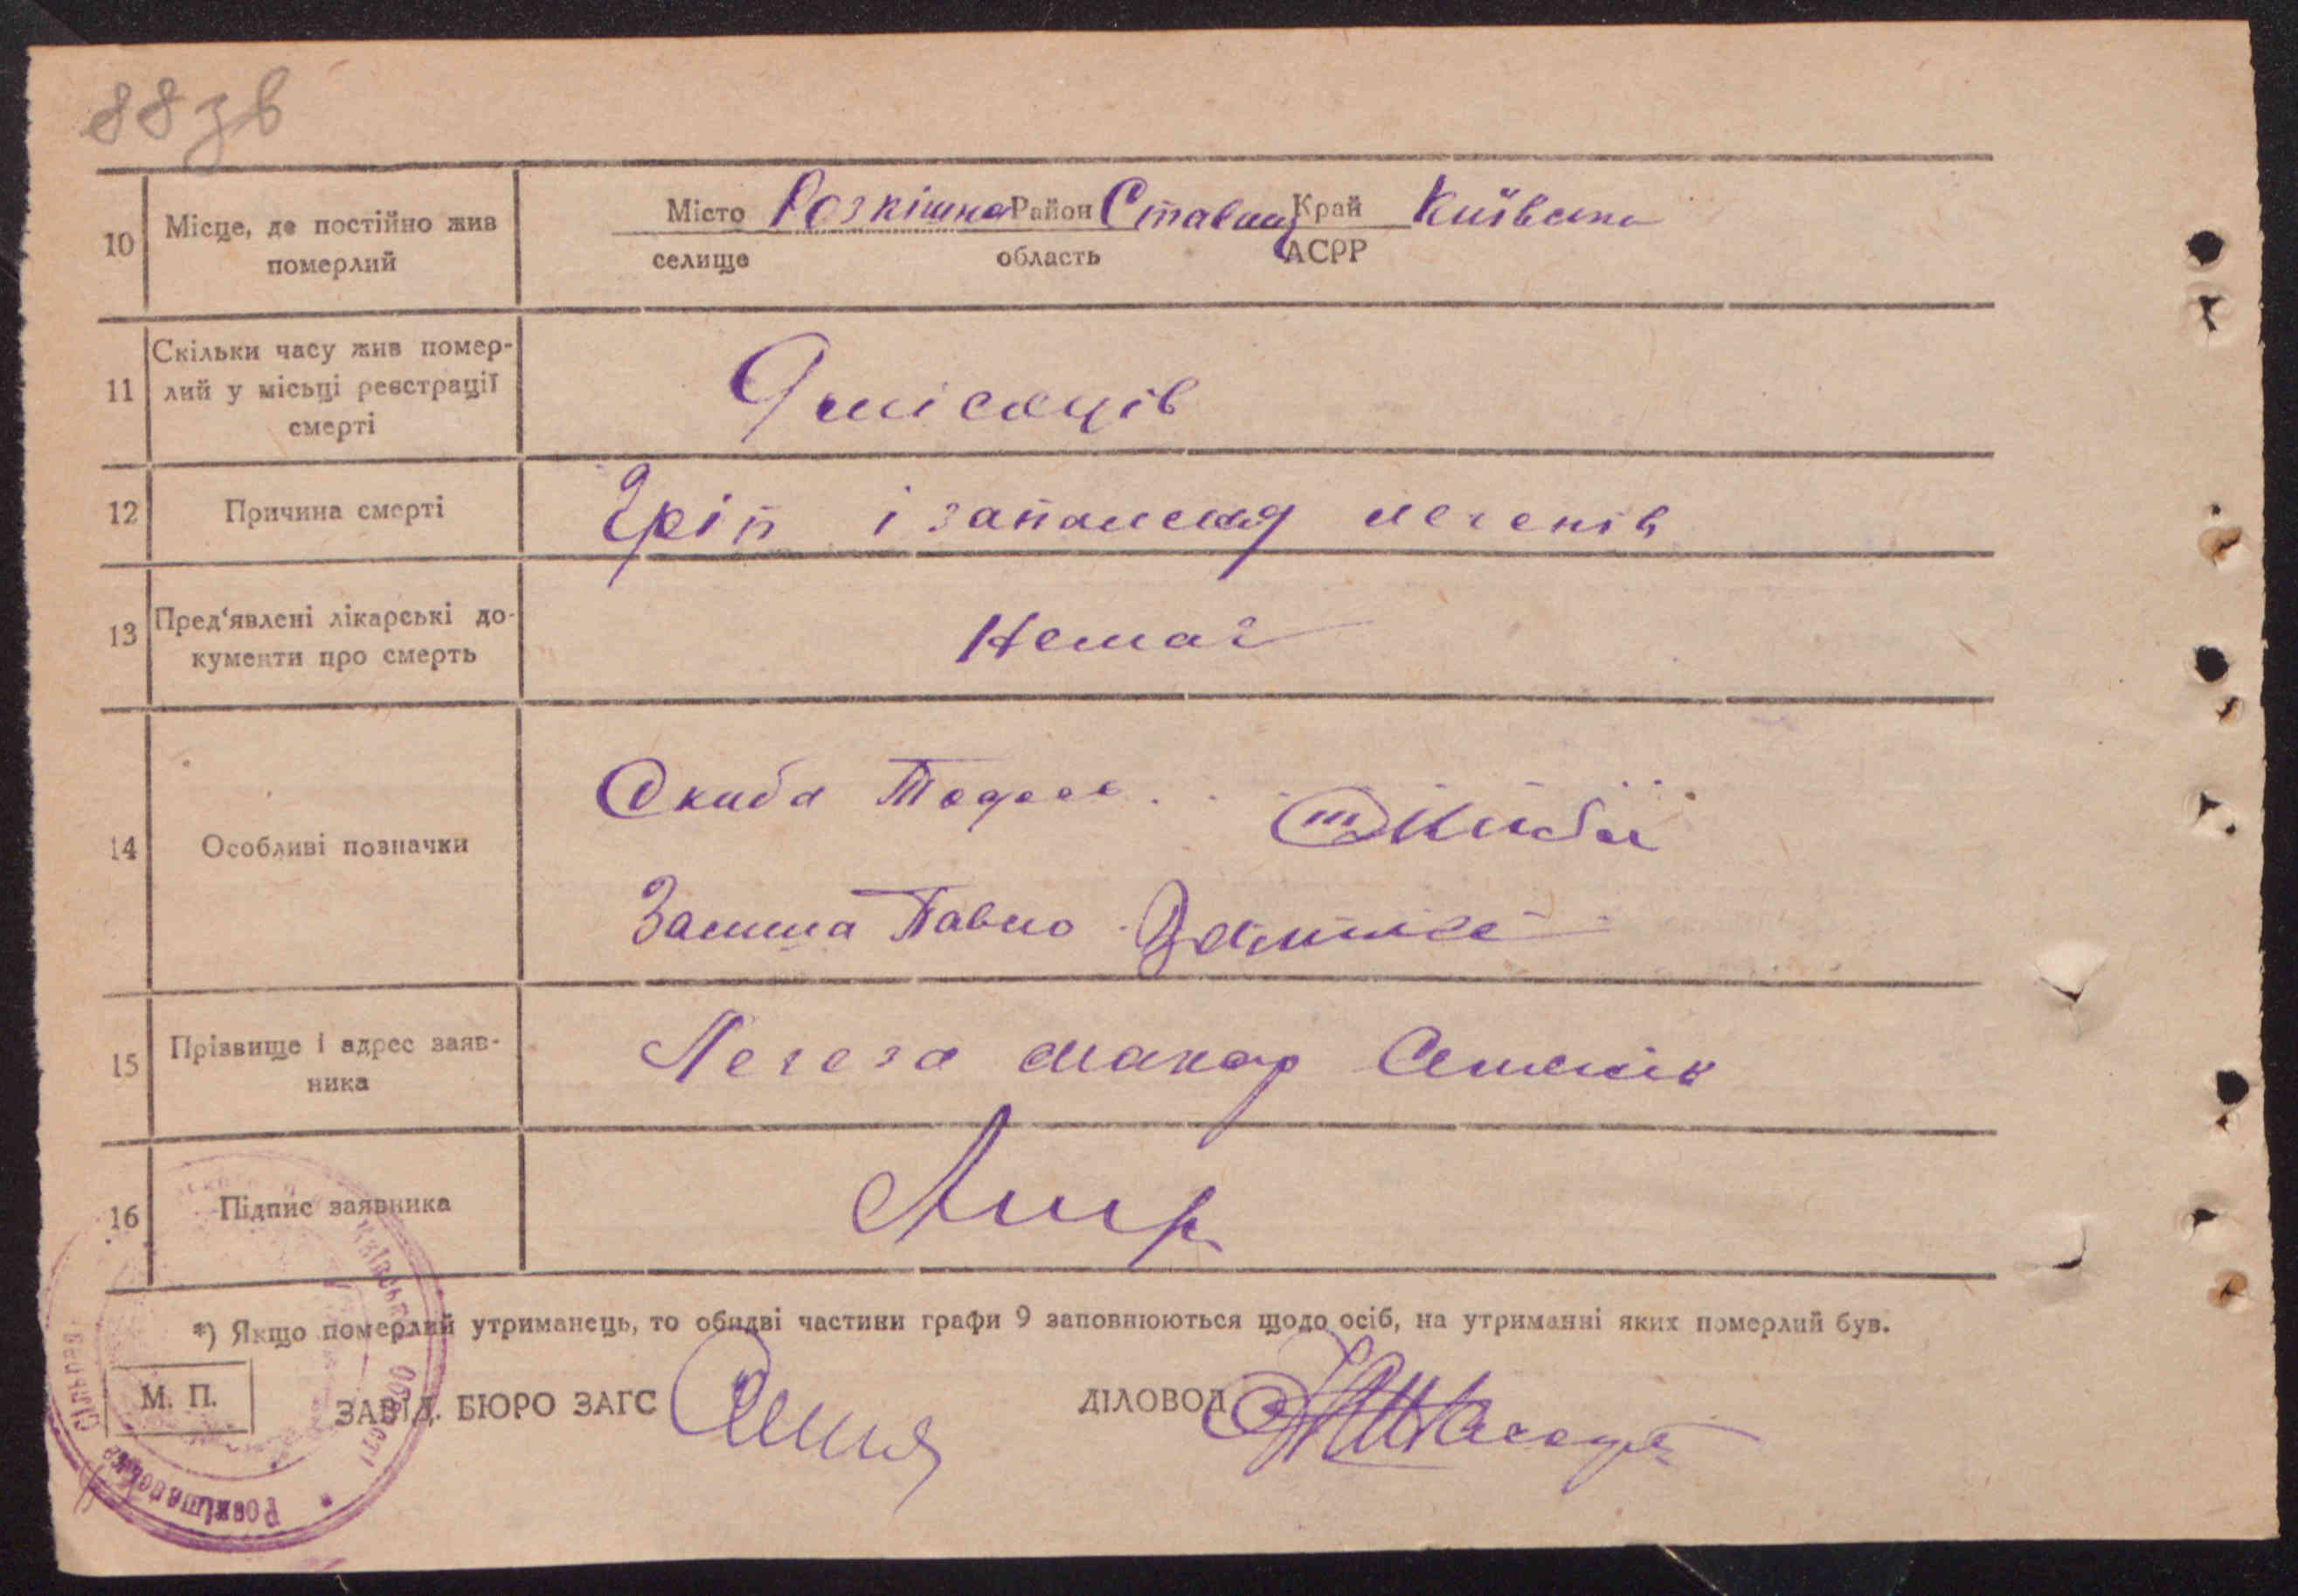 88 зв
10 Місце, де постійно жив померлий
Місто Розкішна Район Ставищ Край Київська
селище область АСРР
11 Скільки часу жив помер-
лий у місьці реєстрації
смерті
9 місяців
12 Причина смерті Гріп і запалення легенів
13 Пред'явлені лікарські до-
кументи про смерть
Немає
14 Особливі позначки
Скиба Тодось Скиба
Замша Павло
15 Прізвище і адрес заяв-
ника
Легеза Макар
16 Підпис заявника
*) Якщо померлий утриманець, то обидві частини графи 9 заповнюються щодо осіб, на утриманні яких померлий був.
М. П. ЗАВІД. БЮРО ЗАГС ДІЛОВОД
Розкішнівська Сільська
Київської Області